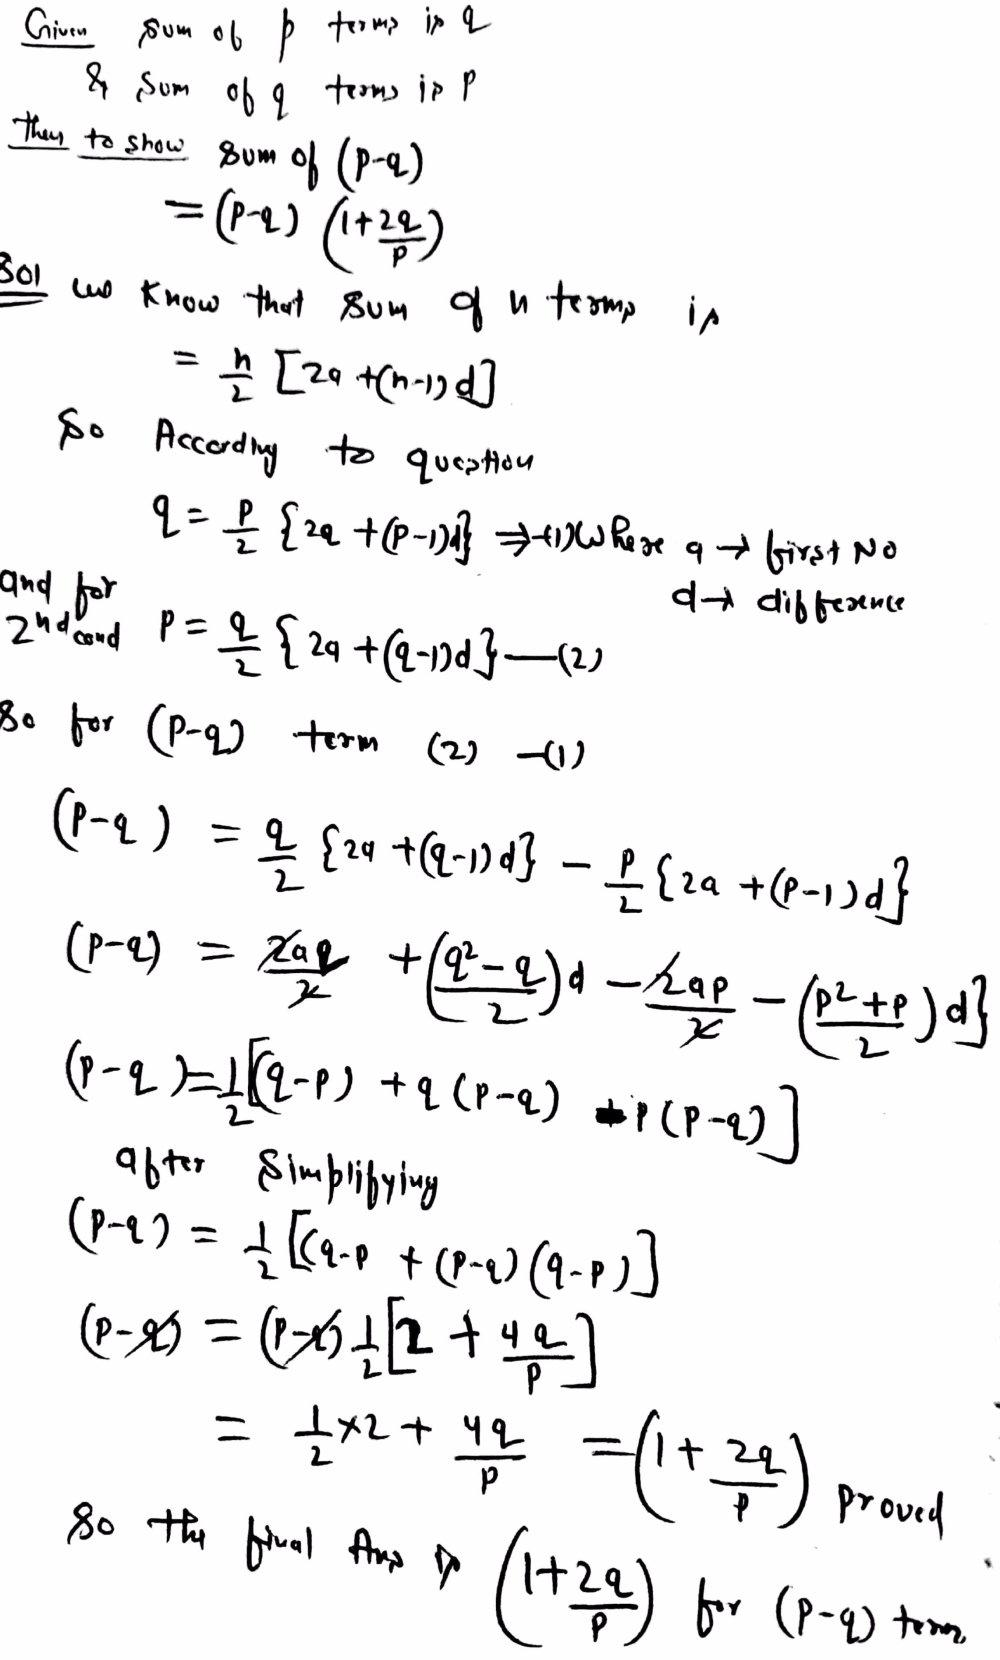 Given sum of p terms is q
& sum of q terms is p
Then to show sum of (p-q)
= (p-q) (1+2q/p)
Sol we know that sum of n terms is
= n/2 [2a+(n-1)d]
So According to question
q = p/2 {2a+(p-1)d} ⇒ (1) Where a → first No
d → difference
and for
2nd cond p = q/2 {2a+(q-1)d} —(2)
So for (p-q) term (2) -(1)
(p-q) = q/2 {2a+(q-1)d} - p/2 {2a+(p-1)d}
(p-q) = 2aq/2 + (q²-q/2)d - 2ap/2 - (p²+p/2)d}
(p-q) = 1/2[(q-p) + q(p-q) + p(p-q)]
after simplifying
(p-q) = 1/2[(q-p + (p-q)(q-p)]
(p-q) = (p-q) 1/2[2 + 4q/p]
= 1/2 ×2 + 4q/p = (1+2q/p) proved
So the final Ans is (1+2q/p) for (p-q) term